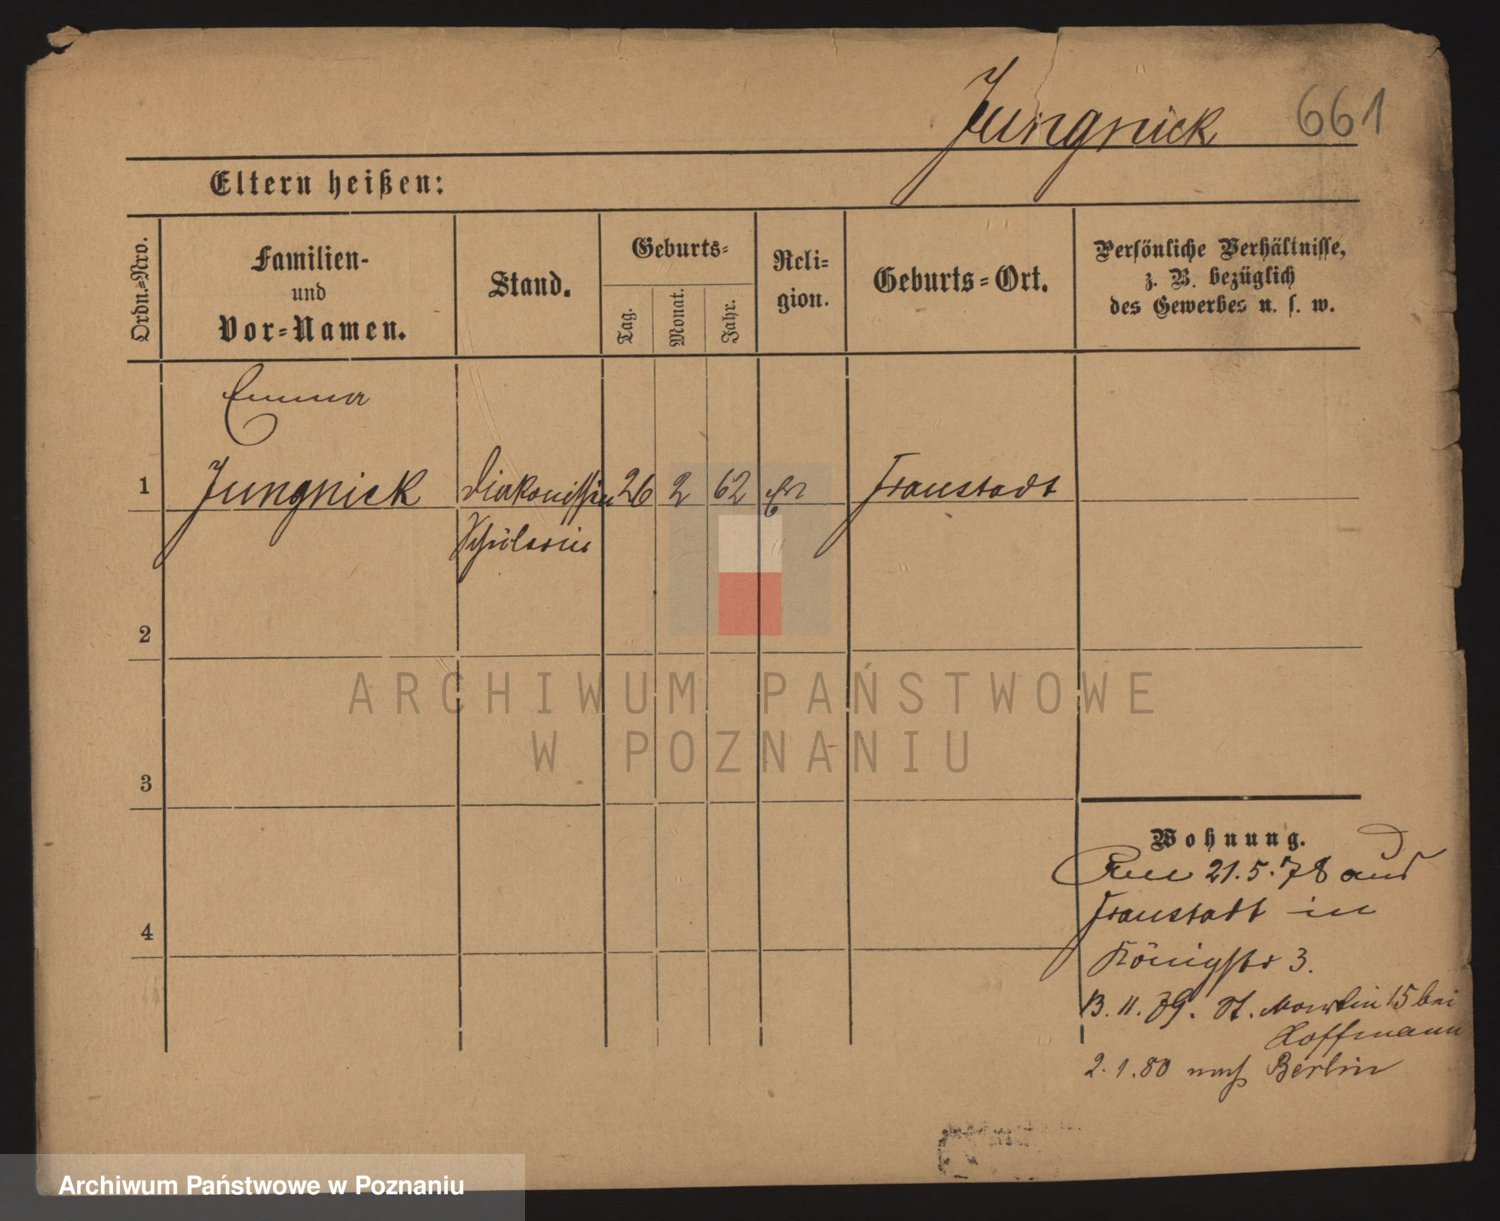 Jungnick 661
Eltern heißen:
Ordn.=Nro.
Familien-
und
Vor=Namen.
Stand.
Geburts=
Tag.
Monat.
Jahr.
Reli=
gion.
Geburts=Ort.
Persönliche Verhältnisse,
z. B. bezüglich
des Gewerbes u. s. w.
Emma
1 Jungnick Diakonissin 26 2 62 Ev Fraustadt
Schülerin
2
3
4
Wohnung.
21.5.78 aus
Fraustadt in
Königstr 3.
13. 11. 79. St. Martin 15 bei
Hoffmann
2.1.80 nach Berlin
ARCHIWUM PAŃSTWOWE
W POZNANIU
Archiwum Państwowe w Poznaniu